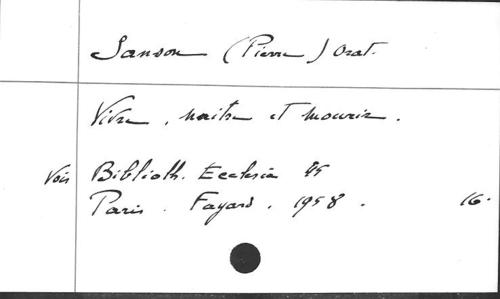 Sanson (Pierre) Orat.
Vivre, naitre et mourir.
Voir Biblioth. Ecclesia 45
Paris. Fayard. 1958. 16.